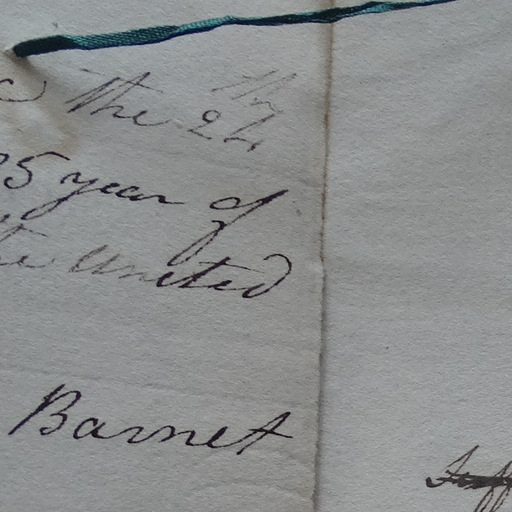 the 24th
5 year of
the United
Barnet